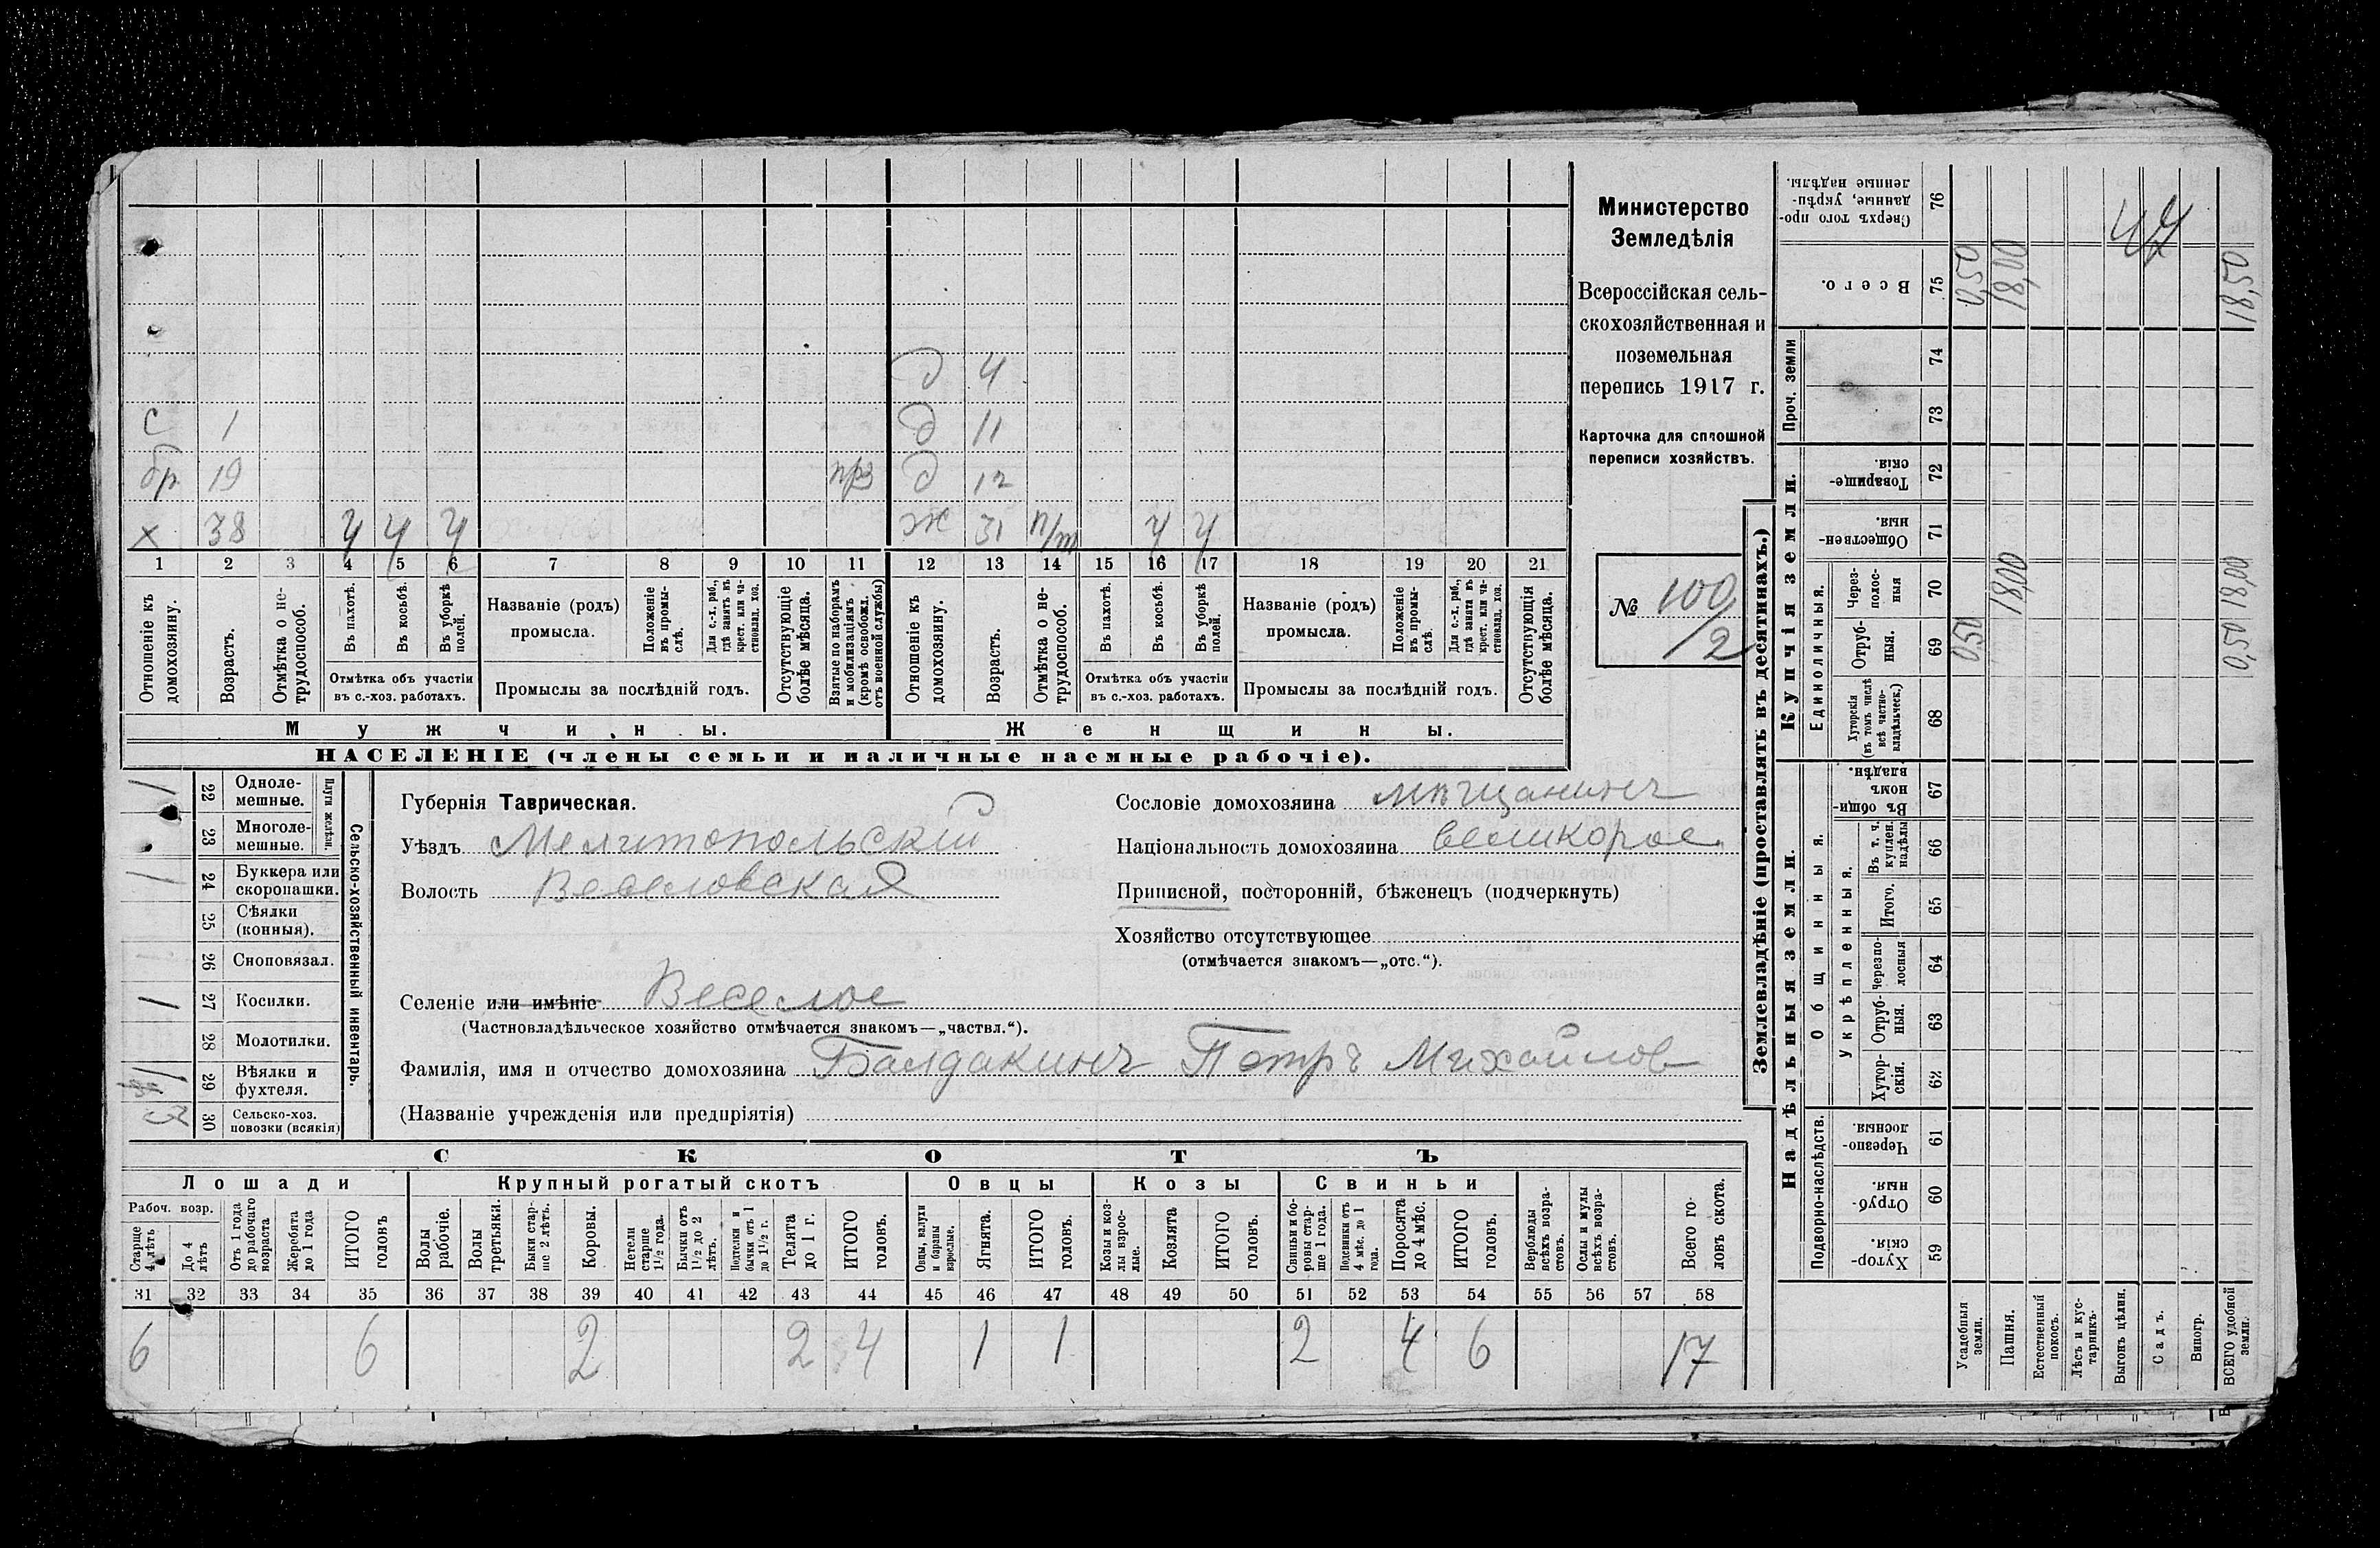 Министерство
Земледѣлія
Всероссійская сель-
скохозяйственная и
поземельная
перепись 1917 г.
Карточка для сплошной
переписи хозяйствъ.
№ 100/2
д 4
с 1 д 11
бр 19 прз д 12
х 38 ч ч ч ж 31 п/т ч ч
1 2 3 4 5 6 7 8 9 10 11 12 13 14 15 16 17 18 19 20 21
Отношеніе къ домохозяину.
Возрастъ.
Отмѣтка о не-трудоспособ.
Въ пахотѣ.
Въ косьбѣ.
Въ уборкѣ полей.
Отмѣтка объ участіи
въ с.-хоз. работахъ.
Названіе (родъ)
промысла.
Положеніе въ промы-слѣ.
Для с.-х. раб., гдѣ занятъ въ крест. или ча-стновлад. хоз.
Промыслы за послѣдній годъ.
Отсутствующіе болѣе мѣсяца.
Взятые по наборамъ и мобилизаціямъ (кромѣ освобожд. отъ военной службы)
Отношеніе къ домохозяину.
Возрастъ.
Отмѣтка о не-трудоспособ.
Въ пахотѣ.
Въ косьбѣ.
Въ уборкѣ полей.
Отмѣтка объ участіи
въ с.-хоз. работахъ.
Названіе (родъ)
промысла.
Положеніе въ промы-слѣ.
Для с.-х. раб., гдѣ заняты въ крест. или ча-стновлад. хоз.
Промыслы за послѣдній годъ.
Отсутствующія болѣе мѣсяца.
Мужчины. Женщины.
НАСЕЛЕНІЕ (члены семьи и наличные наемные рабочіе).
1 22 Одноле-мешные.
23 Многоле-мешные.
Плуги желѣзн.
1 24 Буккера или скоропашки.
25 Сѣялки (конныя).
26 Сноповязал.
1 27 Косилки.
28 Молотилки.
1 29 Вѣялки и фухтеля.
3 30 Сельско-хоз. повозки (всякія)
Сельско-хозяйственный инвентарь.
Губернія Таврическая.
Уѣздъ Мелитопольскій
Волость Веселовская
Селеніе или имѣніе Веселое
(Частновладѣльческое хозяйство отмѣчается знакомъ—„частвл.“).
Фамилія, имя и отчество домохозяина Балдакинъ Петръ Михайлов
(Названіе учрежденія или предпріятія)
Сословіе домохозяина мѣщанинъ
Національность домохозяина великорос.
Приписной, посторонній, бѣженецъ (подчеркнуть)
Хозяйство отсутствующее
(отмѣчается знакомъ—„отс.“).
СКОТЪ
Лошади Крупный рогатый скотъ Овцы Козы Свиньи
Рабоч. возр.
Старше 4 лѣтъ
До 4 лѣтъ
Отъ 1 года до рабочаго возраста
Жеребята до 1 года
ИТОГО головъ
Волы рабочіе.
Волы третьяки.
Быки стар-ше 2 лѣтъ.
Коровы.
Нетели старше 1½ года.
Бычки отъ 1½ до 2 лѣтъ.
Подтелки и бычки отъ 1 до 1½ г.
Телята до 1 г.
ИТОГО головъ.
Овцы, валухи и бараны взрослые.
Ягнята.
ИТОГО головъ.
Козы и коз-лы взрос-лые.
Козлята
ИТОГО головъ.
Свиньи и бо-ровы стар-ше 1 года.
Подсвинки отъ 4 мѣс. до 1 года.
Поросята до 4 мѣс.
ИТОГО головъ.
Верблюды всѣхъ возра-стовъ.
Ослы и мулы всѣхъ возра-стовъ.
Всего го-ловъ скота.
31 32 33 34 35 36 37 38 39 40 41 42 43 44 45 46 47 48 49 50 51 52 53 54 55 56 57 58
6 6 2 2 4 1 1 2 4 6 17
Землевладѣніе (проставлять въ десятинахъ.)
Надѣльныя земли. Купчія земли. Проч. земли
Подворно-наслѣдств. Общинныя. Укрѣпленныя. Единоличныя.
Хутор-скія. 59
Отруб-ныя. 60
Черезпо-лосныя. 61
Хутор-скія. 62
Отруб-ныя. 63
Черезпо-лосныя 64
Итого. 65
Въ т. ч. куплен. надѣлы 66
Въ общин-номъ владѣн. 67
Хуторскія (въ томъ числѣ всѣ частно-владѣльческ.) 68
Отруб-ныя. 69
Через-полос-ныя 70
Обществен-ныя. 71
Товарище-скія. 72
73
74
Всего. 75
Сверхъ того про-данные, укрѣп-ленные надѣлы. 76
Усадебныя земли. 0,50 0,50
Пашня. 18,00 18,00
Естественный покосъ.
Лѣсъ и кус-тарникъ.
Выгонъ цѣлин.
Садъ.
Виногр.
ВСЕГО удобной земли. 0,50 18,00 18,50